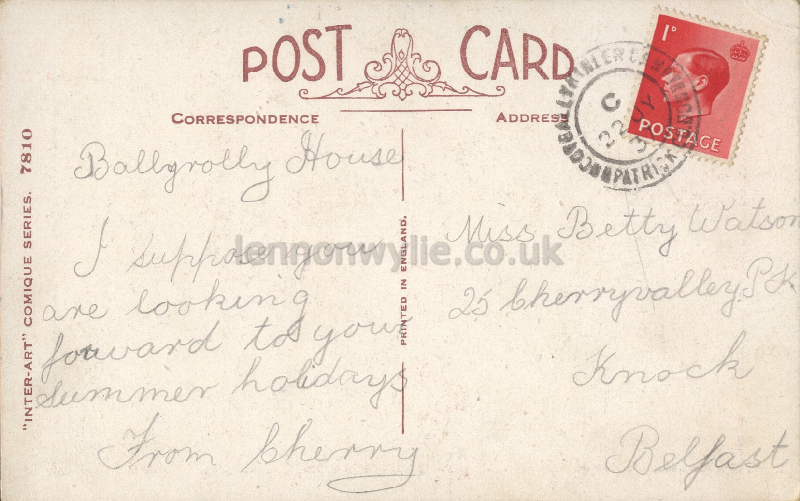 POST CARD
CORRESPONDENCE
ADDRESS
1D
POSTAGE
BALLYKINLER CAMP
DOWNPATRICK
C
22
37
"INTER-ART" COMIQUE SERIES. 7810
PRINTED IN ENGLAND.
Ballyrolly House
I suppose you
are looking
forward to your
summer holidays
From Cherry
Miss Betty Watson
25 Cherryvalley P.K
Knock
Belfast
lennonwylie.co.uk